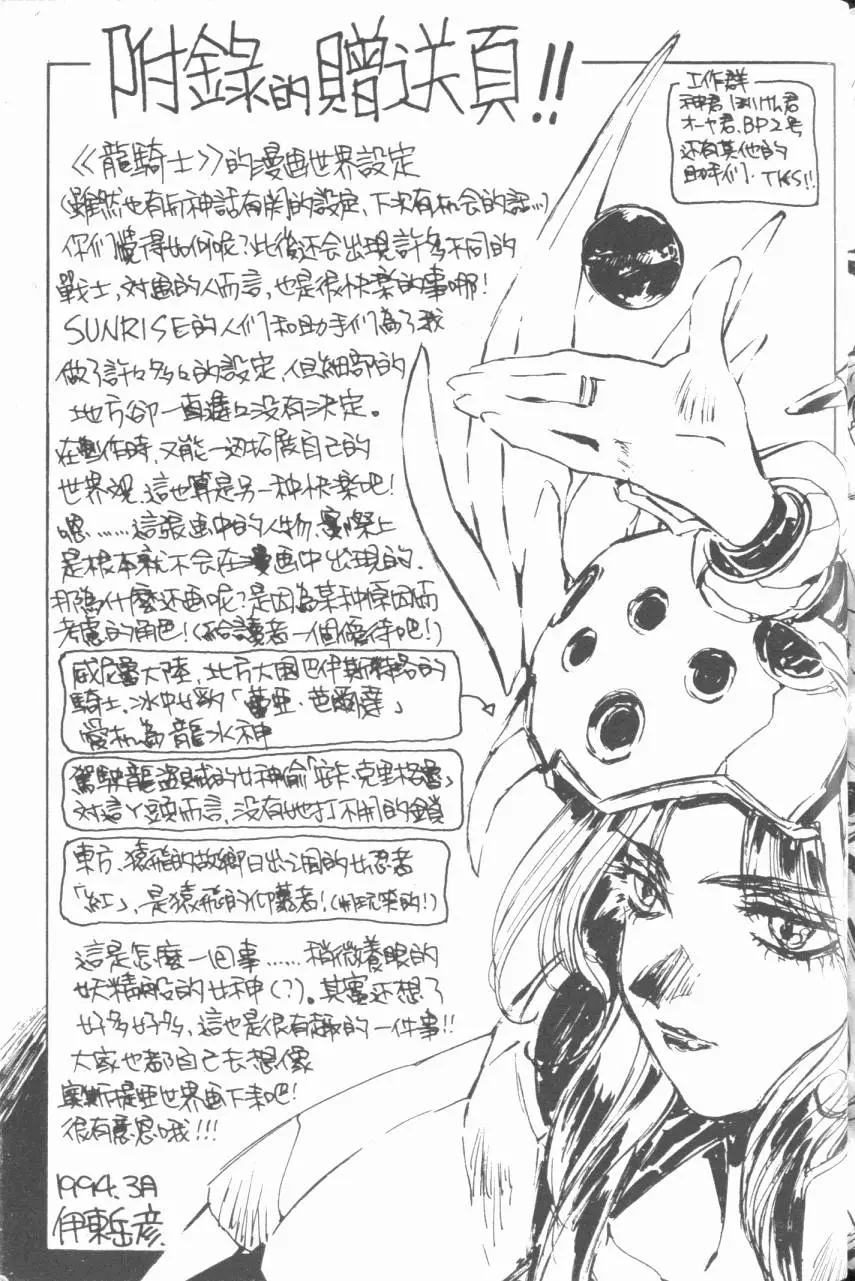 附錄的贈送頁!!
工作群
神君 ほいけん君
オーヤ君、BP2号
还有其他的
助手们. TKS!!
《龍騎士》的漫画世界設定
(雖然也有与神話有関的設定、下次有机会的話…)
你们覺得如何呢?此後还会出現許多不同的
戰士,对画的人而言,也是很快楽的事哪!
SUNRISE的人们和助手们為了我
做了許々多々的設定,但細部的
地方卻一直遲々没有決定。
在創作時,又能一边拓展自己的
世界观,這也算是另一种快楽吧!
嗯……這張画中的人物,實際上
是根本就不会在漫画中出現的.
那為什麼还画呢?是因為某种原因而
考慮的角色!(給讀者一個優待吧!)
大陸,北方大国巴伊斯特路的
騎士,冰中女豹「蕾亞·芭爾達」
愛机為龍水神
駕駛龍盜賊的女神偷「克里格魯」
对這丫頭而言,没有她打不開的鎖
東方、猿飛的故鄉日出之国的女忍者
「紅」,是猿飛的仰慕者!(開玩笑的!)
這是怎麼一回事……稍微養眼的
妖精般的女神(?)。其實还想了
好多好多,這也是很有趣的一件事!!
大家也都自己去想像
奧斯提亞世界画下來吧!
很有意思哦!!!
1994.3月
伊東岳彦.